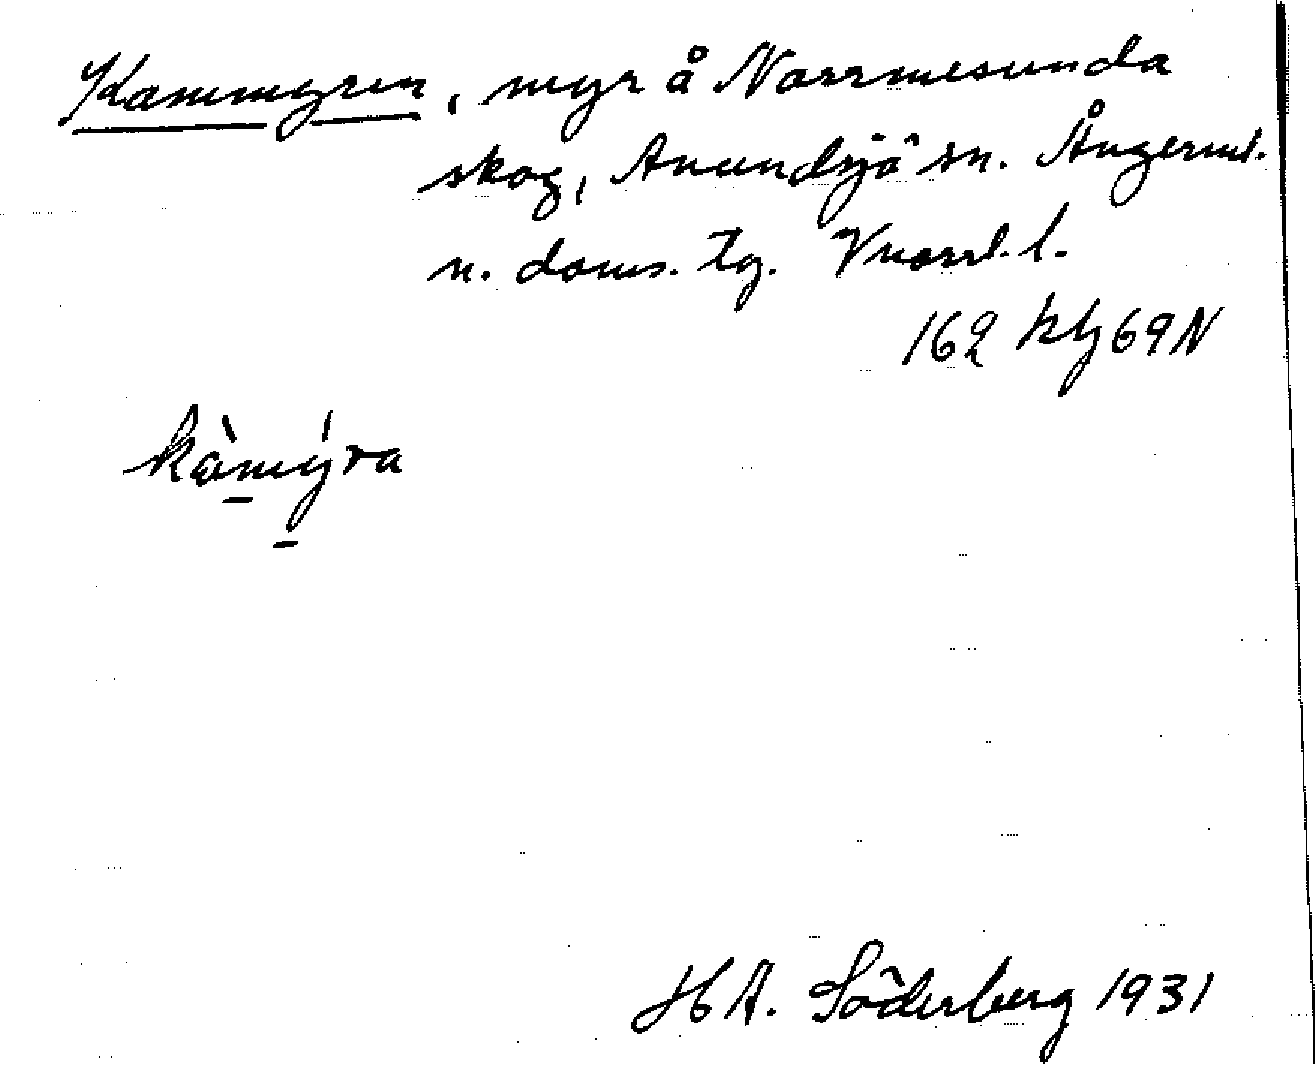 Kammyren, myr å Norrmesunda
skog, Anundsjö sn. Ångerml.
n. doms. tg. Vnorrl. l.
162 Hlj 69 N
kàmýra
H A. Söderberg 1931